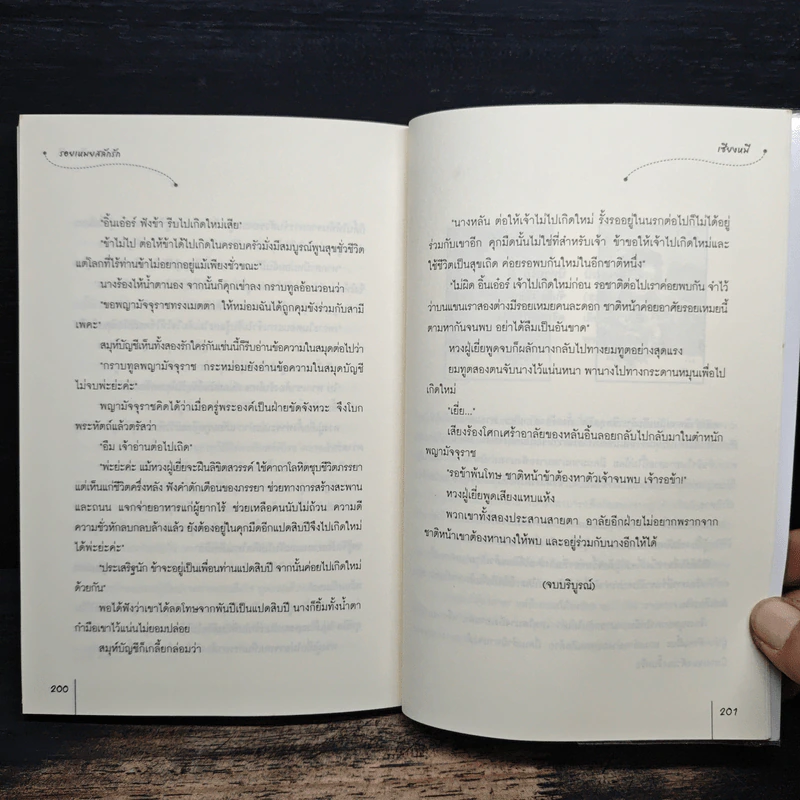 รอยเหมยสลักรัก
"อิ้นเอ๋อร์ ฟังข้า รีบไปเกิดใหม่เสีย"
"ข้าไม่ไป ต่อให้ข้าได้ไปเกิดในครอบครัวมั่งมีสมบูรณ์พูนสุขชั่วชีวิต
แต่โลกที่ไร้ท่านข้าไม่อยากอยู่แม้เพียงชั่วขณะ"
นางร้องไห้น้ำตานอง จากนั้นก็คุกเข่าลง กราบทูลอ้อนวอนว่า
"ขอพญามัจจุราชทรงเมตตา ให้หม่อมฉันได้ถูกคุมขังร่วมกับสามี
เพคะ"
สมุห์บัญชีเห็นทั้งสองรักใคร่กันเช่นนี้ก็รีบอ่านข้อความในสมุดต่อไปว่า
"กราบทูลพญามัจจุราช กระหม่อมยังอ่านข้อความในสมุดบัญชี
ไม่จบพ่ะย่ะค่ะ"
พญามัจจุราชคิดได้ว่าเมื่อครู่พระองค์เป็นฝ่ายขัดจังหวะ จึงโบก
พระหัตถ์แล้วตรัสว่า
"อืม เจ้าอ่านต่อไปเถิด"
"พ่ะย่ะค่ะ แม้หวงฝู่เยี่ยจะฝืนลิขิตสวรรค์ ใช้คาถาโลหิตชุบชีวิตภรรยา
แต่เห็นแก่ชีวิตครึ่งหลัง ฟังคำตักเตือนของภรรยา ช่วยทางการสร้างสะพาน
และถนน แจกจ่ายอาหารแก่ผู้ยากไร้ ช่วยเหลือคนนับไม่ถ้วน ความดี
ความชั่วหักลบกลบล้างแล้ว ยังต้องอยู่ในคุกมืดอีกแปดสิบปีจึงไปเกิดใหม่
ได้พ่ะย่ะค่ะ"
"ประเสริฐนัก ข้าจะอยู่เป็นเพื่อนท่านแปดสิบปี จากนั้นค่อยไปเกิดใหม่
ด้วยกัน"
พอได้ฟังว่าเขาได้ลดโทษจากพันปีเป็นแปดสิบปี นางก็ยิ้มทั้งน้ำตา
กำมือเขาไว้แน่นไม่ยอมปล่อย
สมุห์บัญชีก็เกลี้ยกล่อมว่า
200
เซียงหมี
"นางหลัน ต่อให้เจ้าไม่ไปเกิดใหม่ รั้งรออยู่ในนรกต่อไปก็ไม่ได้อยู่
ร่วมกับเขาอีก คุกมืดนั้นไม่ใช่ที่สำหรับเจ้า ข้าขอให้เจ้าไปเกิดใหม่และ
ใช้ชีวิตเป็นสุขเถิด ค่อยรอพบกันใหม่ในอีกชาติหนึ่ง"
"ไม่ผิด อิ้นเอ๋อร์ เจ้าไปเกิดใหม่ก่อน รอชาติต่อไปเราค่อยพบกัน จำไว้
ว่าบนแขนเราสองต่างมีรอยเหมยคนละดอก ชาติหน้าค่อยอาศัยรอยเหมยนี้
ตามหากันจนพบ อย่าได้ลืมเป็นอันขาด"
หวงฝู่เยี่ยพูดจบก็ผลักนางกลับไปทางยมทูตอย่างสุดแรง
ยมทูตสองตนจับนางไว้แน่นหนา พานางไปทางกระดานหมุนเพื่อไป
เกิดใหม่
"เยี่ย..."
เสียงร้องโศกเศร้าอาลัยของหลันอิ้นลอยกลับไปกลับมาในตำหนัก
พญามัจจุราช
"รอข้าพ้นโทษ ชาติหน้าข้าต้องหาตัวเจ้าจนพบ เจ้ารอข้า!"
หวงฝู่เยี่ยพูดเสียงแหบแห้ง
พวกเขาทั้งสองประสานสายตา อาลัยอีกฝ่ายไม่อยากพรากจาก
ชาติหน้าเขาต้องหานางให้พบ และอยู่ร่วมกับนางอีกให้ได้
(จบบริบูรณ์)
201